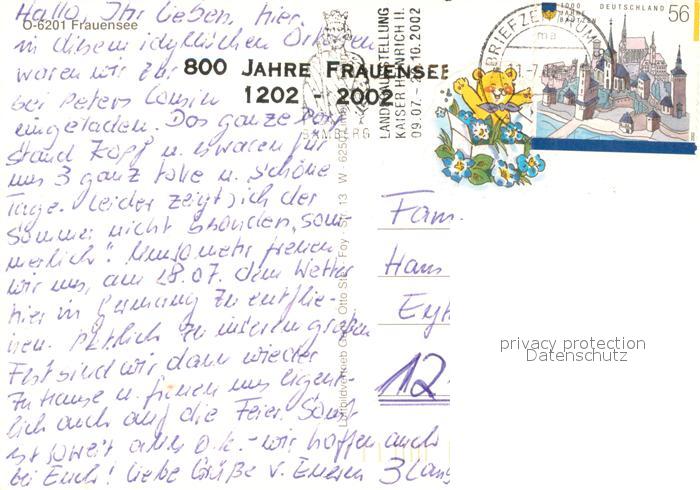 Hallo, Ihr Lieben, hier
O-6201 Frauensee
in diesem idyllischen Örtchen
waren wir zur
800 JAHRE FRAUENSEE
1202 - 2002
bei Peters Cousin
eingeladen. Das ganze Dorf
stand Kopf u. es waren für
uns 3 ganz tolle u. schöne
Tage. Leider zeigt sich der
Sommer nicht besonders „som-
merlich". Umsomehr freuen
wir uns, am 28.07. dem Wetter
hier in Germany zu entflie-
hen. Pünktlich zu unserem großen
Fest sind wir dann wieder
zu Hause u. freuen uns eigent-
lich auch auf die Feier. Sonst
ist soweit alles o.k. - wir hoffen auch
bei Euch! Liebe Grüße v. Eueren 3 Lang
LANDESAUSSTELLUNG
KAISER HEINRICH II.
09.07. - 20.10.2002
BAMBERG
BRIEFZENTRUM
ma
1000
JAHRE
BAUTZEN
DEUTSCHLAND
56
Fam.
Hans
12
privacy protection
Datenschutz